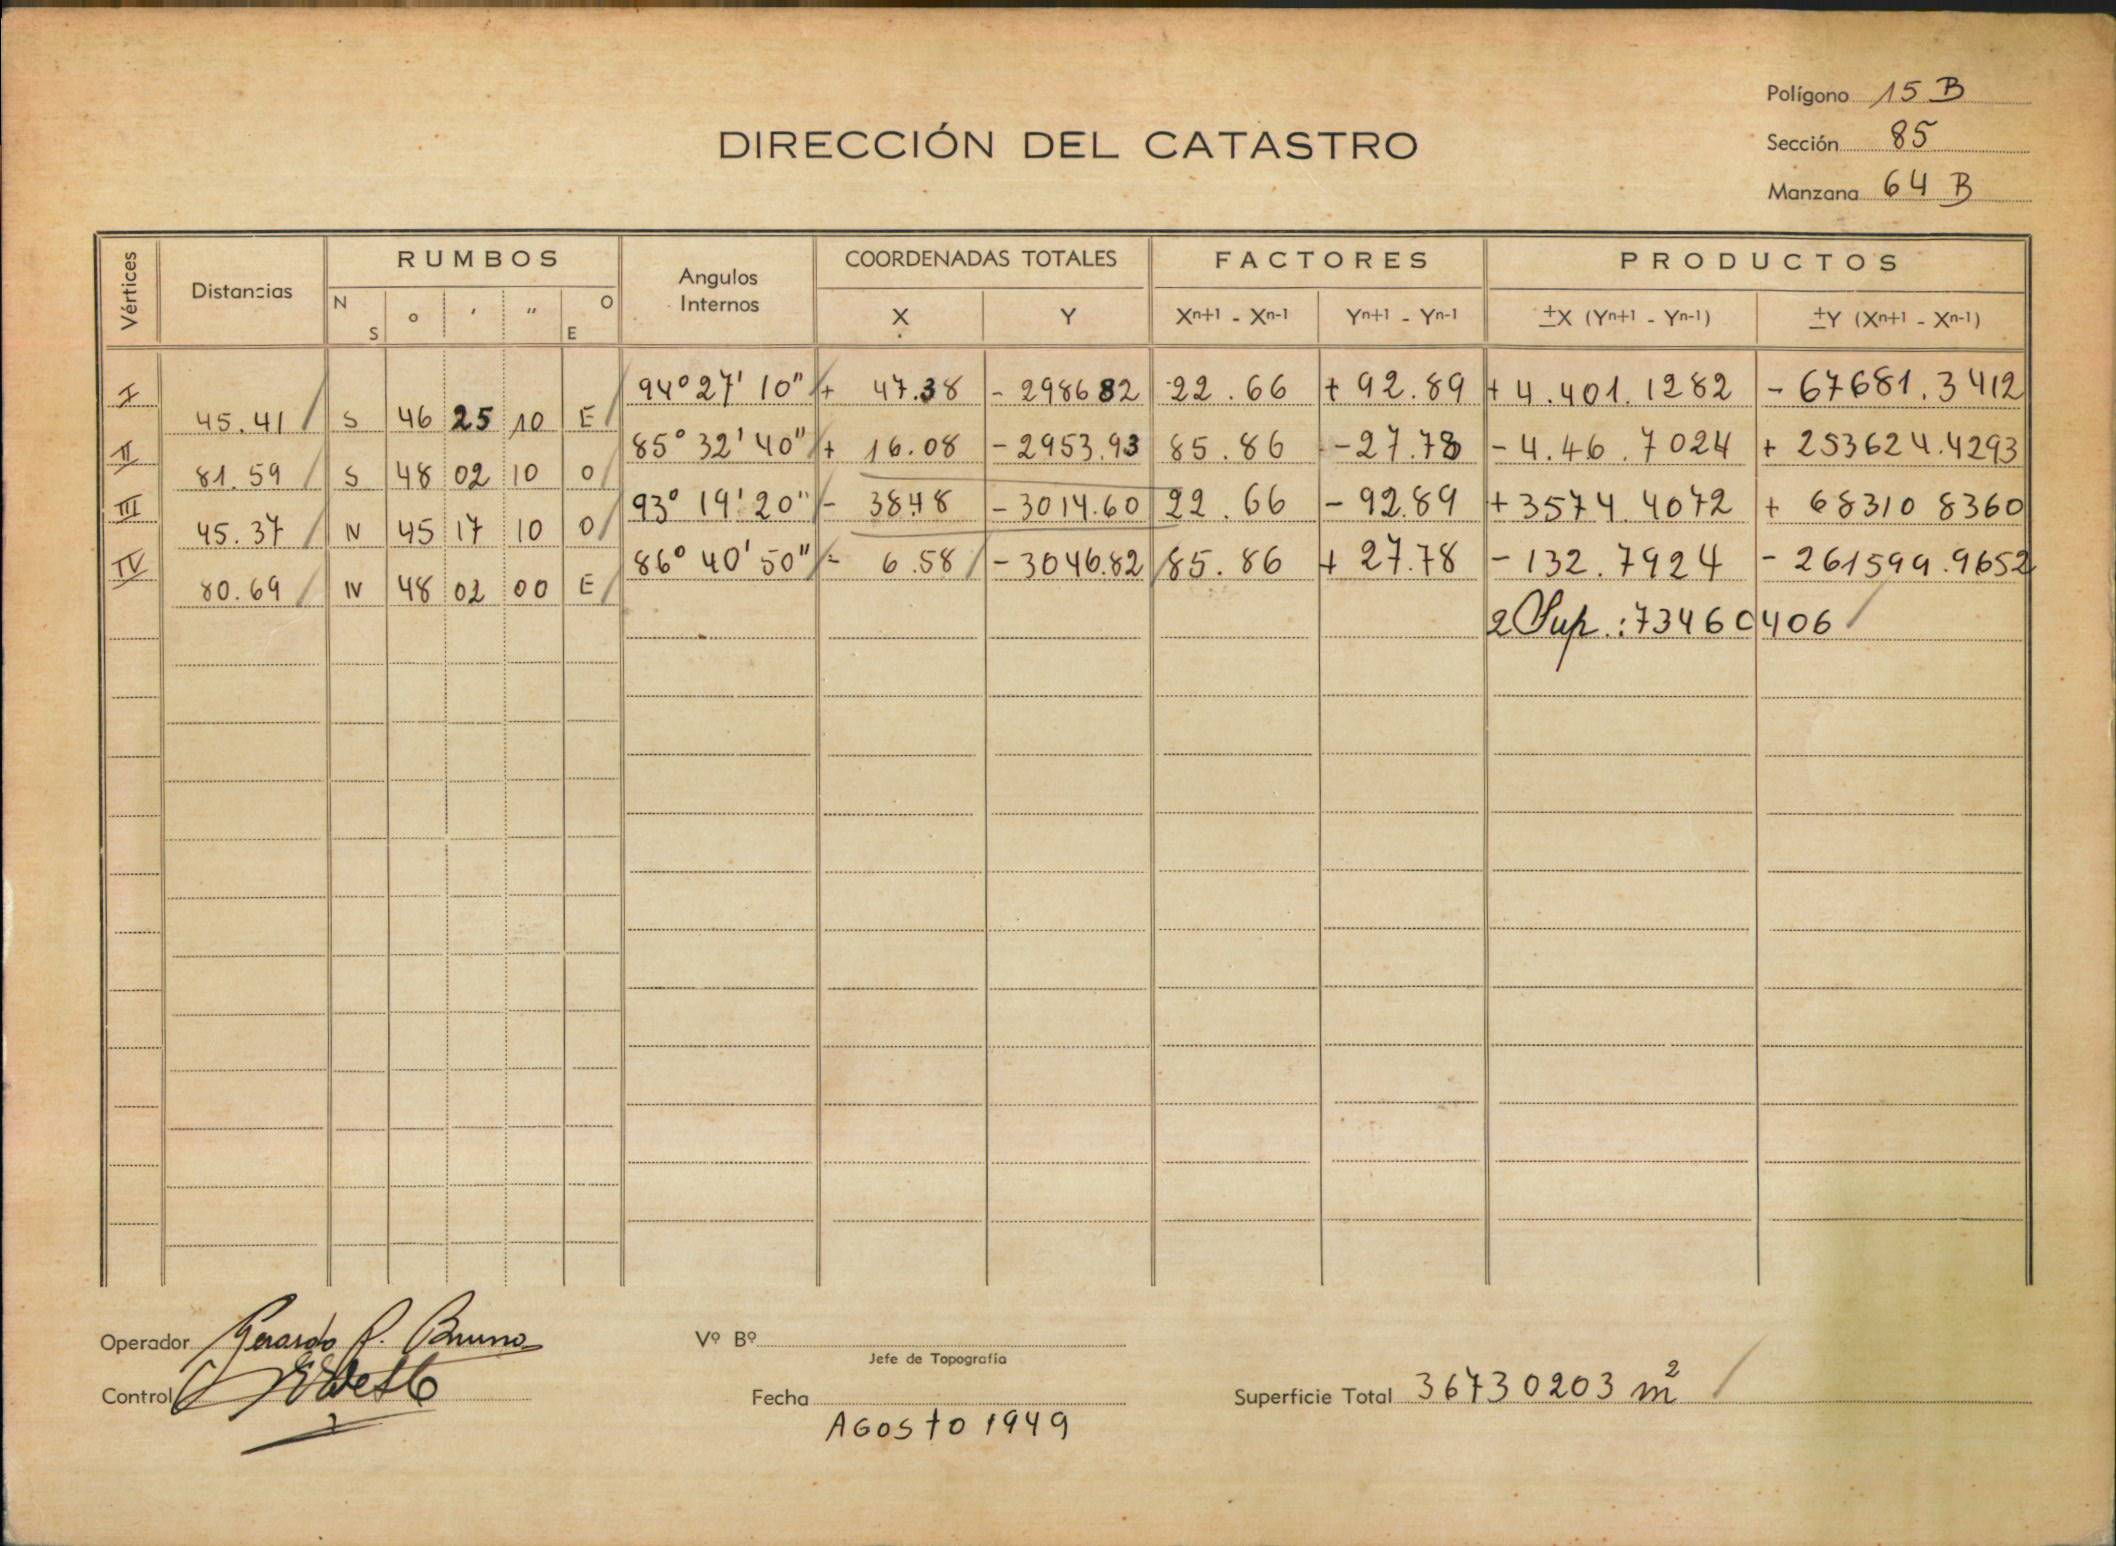 Polígono 15 B
DIRECCIÓN DEL CATASTRO
Sección 85
Manzana 64 B
Vértices Distancias RUMBOS Angulos Internos COORDENADAS TOTALES FACTORES PRODUCTOS
N S o ' " O E X Y Xn+1 - Xn-1 Yn+1 - Yn-1 ±X (Yn+1 - Yn-1) ±Y (Xn+1 - Xn-1)
I 94° 27' 10" + 47.38 - 2986 82 22.66 + 92.89 + 4.401.1282 - 67681.3412
45.41 S 46 25 10 E
II 85° 32' 40" + 16.08 - 2953.93 85.86 - 27.78 - 4.46.7024 + 253624.4293
81.59 S 48 02 10 O
III 93° 19' 20" - 38.48 - 3014.60 22.66 - 92.89 + 3574.4072 + 68310 8360
45.37 N 45 17 10 O
IV 86° 40' 50" - 6.58 - 3046.82 85.86 + 27.78 - 132.7924 - 261599.9652
80.69 N 48 02 00 E
2 Sup.: 73460406
Operador Gerardo R. Bruno
Vº Bº
Jefe de Topografía
Control
Fecha
AGOSTO 1949
Superficie Total 36730203 m2